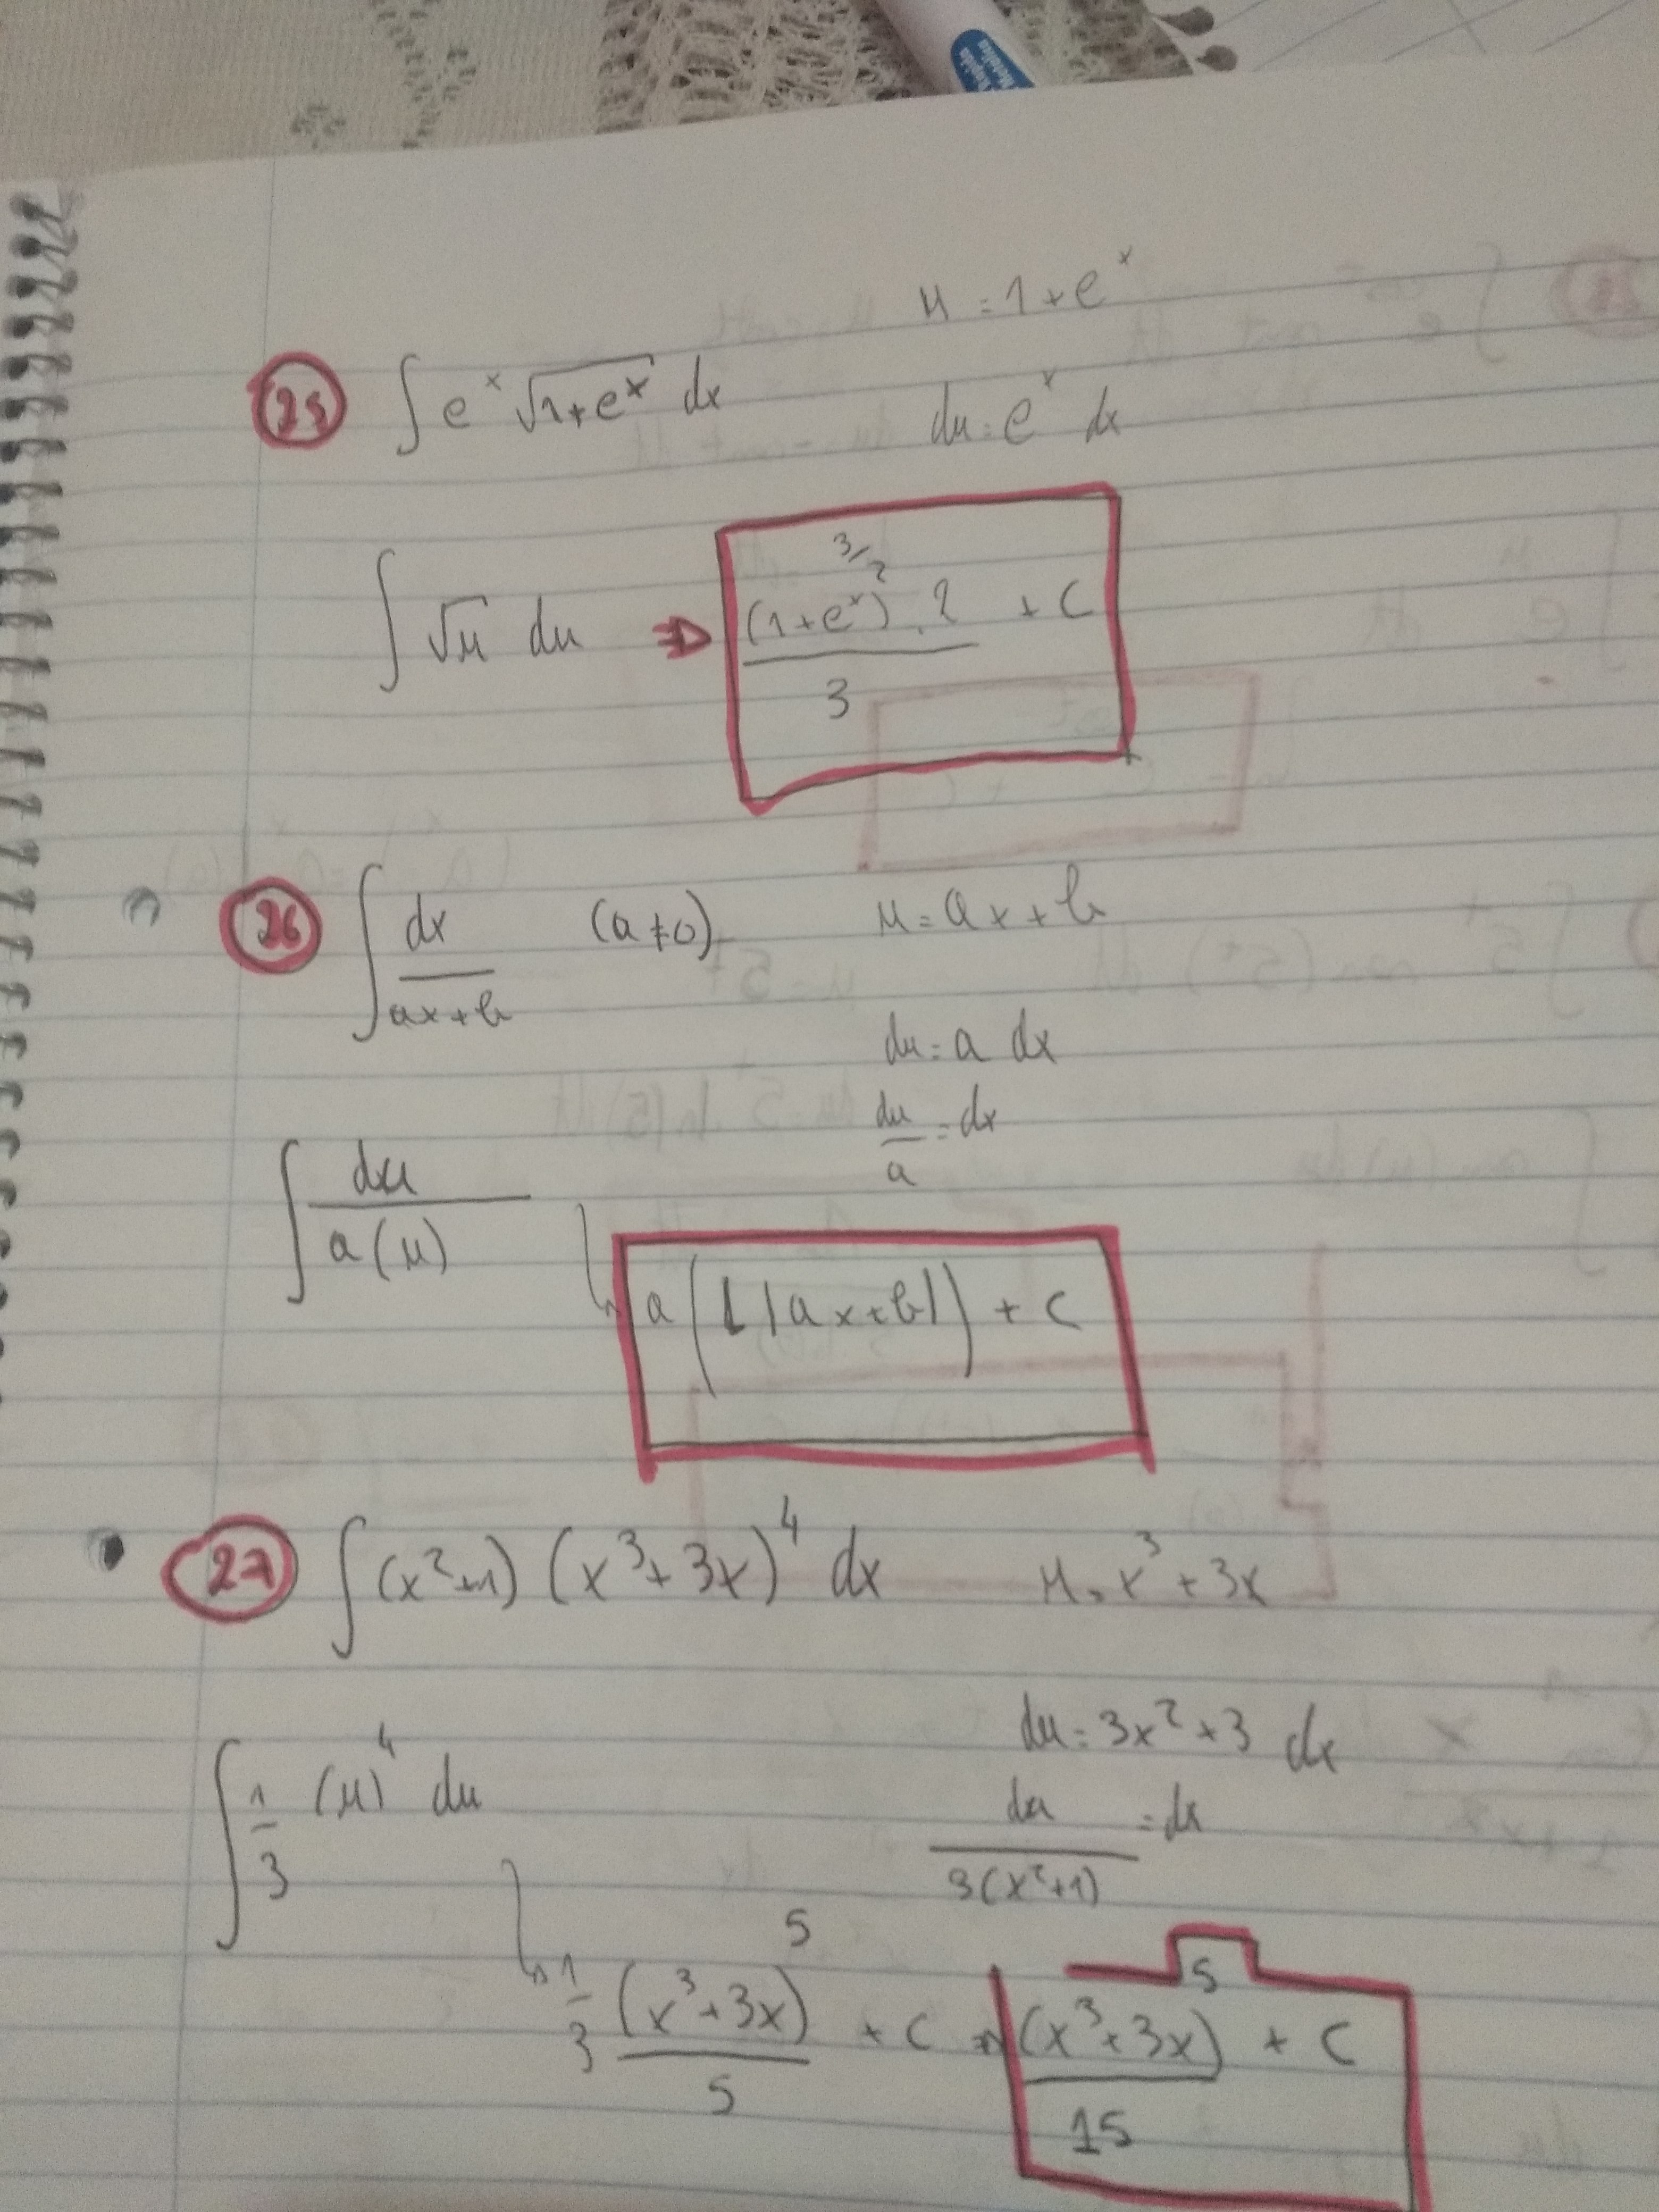 u = 1 + e^x
25 ∫ e^x √(1+e^x) dx
du = e^x dx
∫ √u du ⇒ (1+e^x)^(3/2) . 2 / 3 + C
26 ∫ dx/(ax+b) (a≠0) u = ax+b
du = a dx
du/a = dx
∫ du/(a(u))
a( |ax+b|) + C
27 ∫ (x²+1) (x³+3x)^4 dx u = x³+3x
du = 3x²+3 dx
∫ 1/3 (u)^4 du
du/(3(x²+1)) = dx
1/3 (x³+3x)^5/5 + C → (x³+3x)^5/15 + C